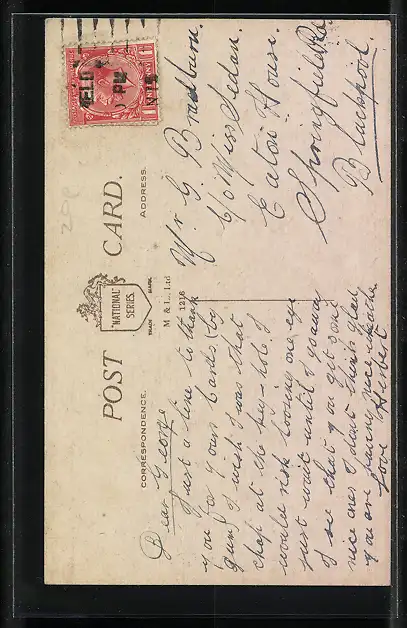 POST CARD.
"NATIONAL"
SERIES.
TRADE MARK.
M & L., Ltd
1216
CORRESPONDENCE.
ADDRESS.
Dear George
Just a line to thank
you for yours Cards, by
Gum I wish I was that
chap at the key-hole I
would risk loosing one eye
just wait until I go away
I see that you get some
nice ones I dont think, glad
you are having nice weather
love Herbert
Mr G
C/o Miss Sedan.
Eaton House.
Springfield Rd
Blackpool.